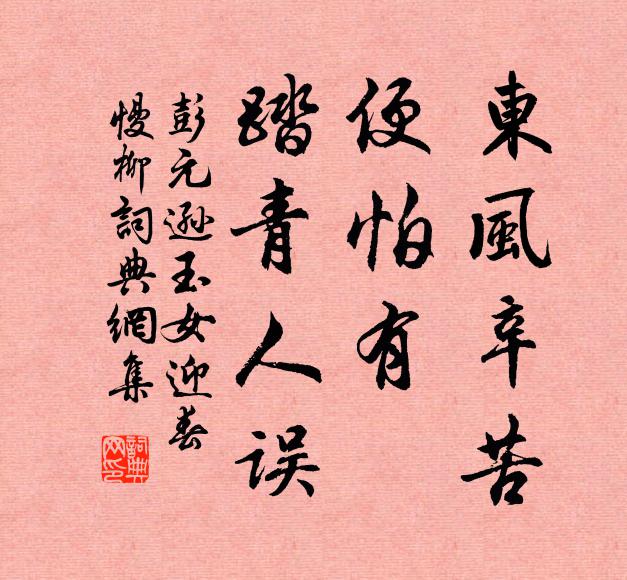 東風辛苦
便怕有
踏青人誤
彭元遜玉女迎春
慢柳詞典網集
詞典网印